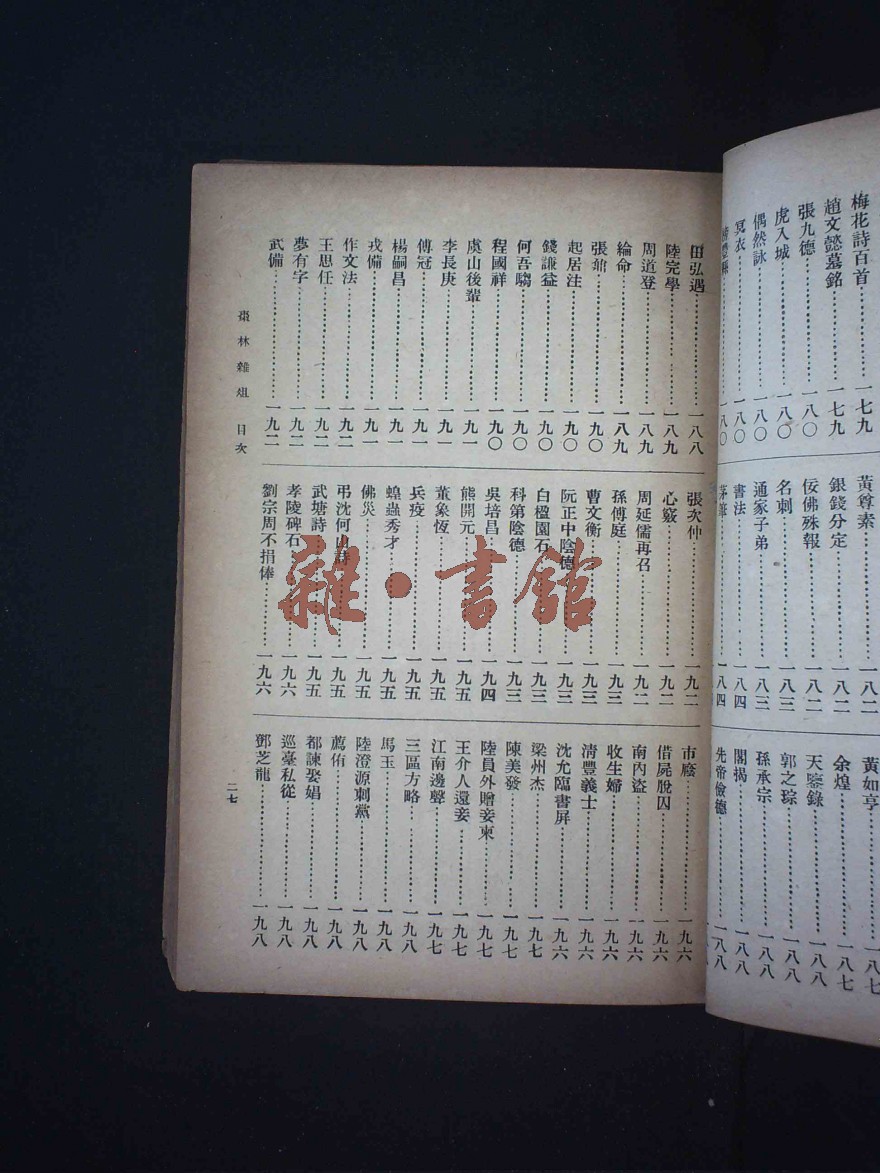 梅花詩百首……一七九
趙文懿墓銘……一七九
張九德……一八〇
虎入城……一八〇
偶然詠……一八〇
冥衣……一八〇
一八〇
黃尊素……一八二
銀錢分定……一八二
佞佛殊報……一八二
名刺……一八三
通家子弟……一八三
書法……一八四
茅筆……一八四
黃如亨……一八七
余煌……一八七
天鑒錄……一八八
郭之琮……一八八
孫承宗……一八八
閣揭……一八八
先帝儉德……一八八
田弘遇……一八八
陸完學……一八九
周道登……一八九
綸命……一八九
張鼐……一九〇
起居注……一九〇
錢謙益……一九〇
何吾騶……一九〇
程國祥……一九〇
虞山後輩……一九一
李長庚……一九一
傅冠……一九一
楊嗣昌……一九一
戎備……一九一
作文法……一九二
王思任……一九二
夢有字……一九二
武備……一九二
張次仲……一九二
心竅……一九二
周延儒再召……一九二
孫傅庭……一九三
曹文衡……一九三
阮正中陰德……一九三
白楹園石……一九三
科第陰德……一九三
吳培昌……一九四
熊開元……一九五
董象恆……一九五
兵疫……一九五
蝗蟲秀才……一九五
佛災……一九五
弔沈何山詩……一九五
武塘詩……一九五
孝陵碑石……一九六
劉宗周不捐俸……一九六
市廢……一九六
借屍脫囚……一九六
南內盜……一九六
收生婦……一九六
清豐義士……一九六
沈允臨書屏……一九六
梁州杰……一九七
陳美發……一九七
陸員外贈妾柬……一九七
王介人還妾……一九七
江南邊聲……一九七
三區方略……一九八
馬玉……一九八
陸澄源刺黨……一九八
薦侑……一九八
都諫娶娼……一九八
巡臺私從……一九八
鄧芝龍……一九八
棗林雜俎 目次
二七
雜·書館